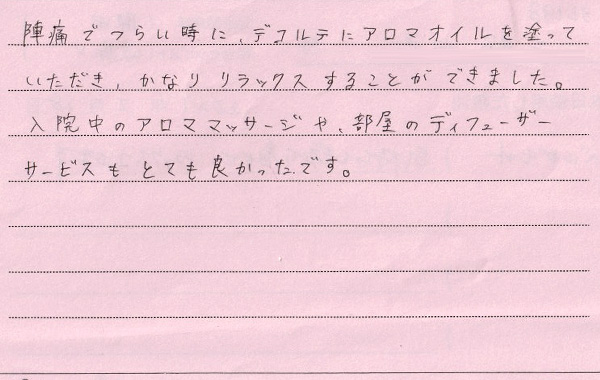 陣痛でつらい時に、デコルテにアロマオイルを塗って
いただき、かなりリラックスすることができました。
入院中のアロママッサージや、部屋のディフューザー
サービスもとても良かったです。